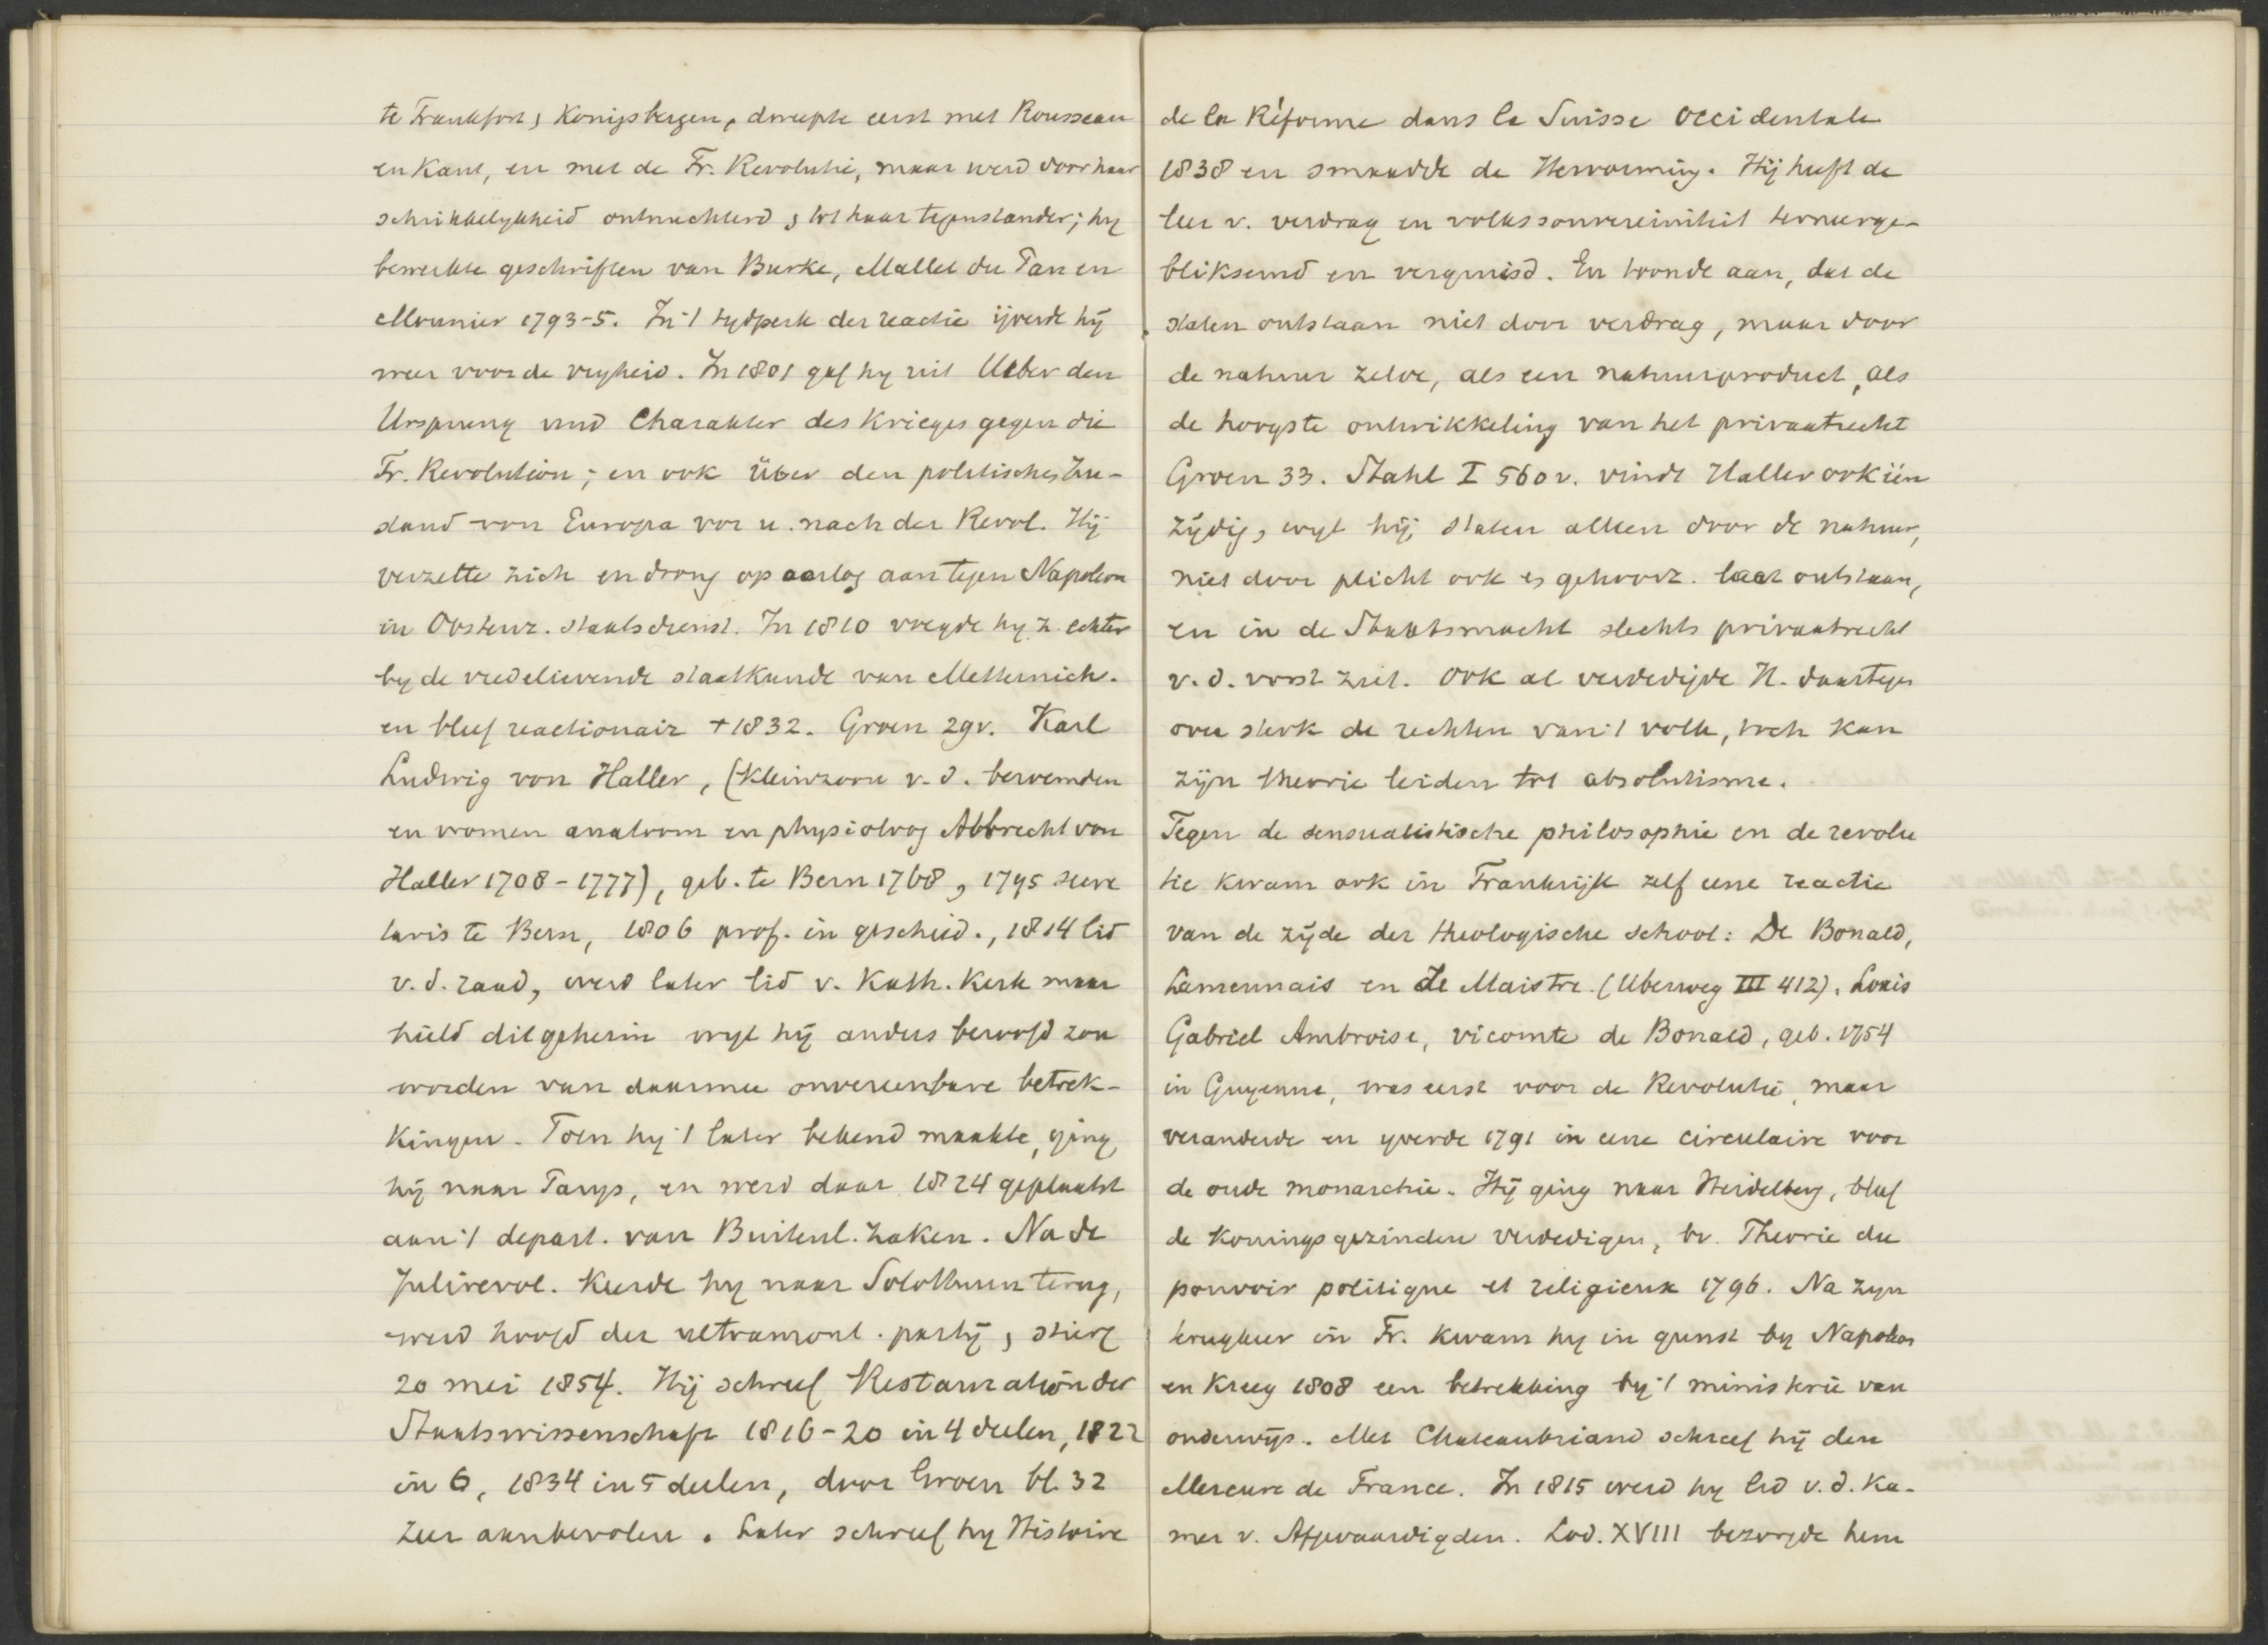 te Frankfort, Konigsbergen, dweepte eerst met Rousseau
en Kant, en met de Fr. Revolutie, maar werd door haar
schrikkelykheid ontnuchterd, tot haar tegenstander; hy
bewerkte geschriften van Burke, Mallet du Pan en
Mounier 1793-5. In 't tydperk der reactie ijverde hij
weer voor de vryheid. In 1801 gaf hy uit Ueber den
Ursprung und Charakter des Krieges gegen die
Fr. Revolution; en ook Über den politischen Zu-
stand von Europa vor u. nach der Revol. Hij
verzette zich en drong op oorlog aan tegen Napoleon
in Oostenr. staatsdienst. In 1810 voegde hy z. echter
by de vredelievende staatkunde van Metternich.
en bleef reactionair + 1832. Groen 29v. Karl
Ludwig von Haller, (kleinzoon v. d. beroemden
en vromen anatoom en physioloog Albrecht von
Haller 1708-1777), geb. te Bern 1768, 1795 secre
taris te Bern, 1806 prof. in geschied., 1814 lid
v. d. raad, werd later lid v. Kath. Kerk maar
hield dit geheim wyl hij anders beroofd zou
worden van daarmee onvereenbare betrek-
kingen. Toen hy 't later bekend maakte, ging
hij naar Parys, en werd daar 1824 geplaatst
aan 't depart. van Buitenl. Zaken. Na de
Julirevol. keerde hy naar Solothurn terug,
werd hoofd der ultramont. partij, stierf
20 mei 1854. Hij schreef Restauration der
Staatswissenschaft 1816-20 in 4 deelen, 1822
in 6, 1834 in 5 deelen, door Groen bl. 32
zeer aanbevolen. Later schreef hy Histoire
de la Réforme dans la Suisse occidentale
1838 en smaadde de Hervorming. Hij heeft de
leer v. verdrag en volkssouvereiniteit terneerge-
bliksemd en vergruisd. En toonde aan, dat de
staten ontstaan niet door verdrag, maar door
de natuur zelve, als een natuurproduct, als
de hoogste ontwikkeling van het privaatrecht
Groen 33. Stahl I 560v. vindt Haller ook één
zijdig, wyl hij staten alleen door de natuur,
niet door plicht ook es gehoorz. laat ontstaan,
en in de Staatsmacht slechts privaatrecht
v. d. vorst ziet. Ook al verdedigde H. daartegen
over sterk de rechten van 't volk, toch kan
zijn theorie leiden tot absolutisme.
Tegen de sensualistische philosophie en de revolu
tie kwam ook in Frankrijk zelf eene reactie
van de zijde der theologische school: De Bonald,
Lamennais en de Maistre. (Uberweg III 412). Louis
Gabriel Ambroise, vicomte de Bonald, geb. 1754
in Guyenne, was eerst voor de Revolutie, maar
veranderde en yverde 1791 in eene circulaire voor
de oude monarchie. Hij ging naar Heidelberg, bleef
de koningsgezinden verdedigen, bv. Theorie du
pouvoir politique et religieux 1796. Na zyn
terugkeer in Fr. kwam hy in gunst by Napoleon
en kreeg 1808 een betrekking by 't ministerie van
onderwijs. Met Chateaubriand schreef hij den
Mercure de France. In 1815 werd hy lid v. d. Ka-
mer v. Afgevaardigden. Lod. XVIII bezorgde hem